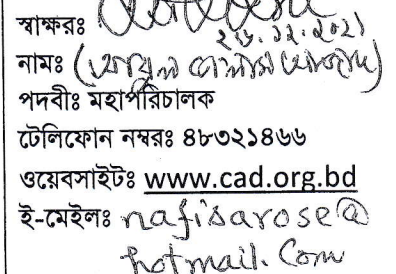 স্বাক্ষরঃ
২৬.১২.২০২১
নামঃ (আবুল কালাম আজাদ)
পদবীঃ মহাপরিচালক
টেলিফোন নম্বরঃ ৪৮৩২১৪৬৬
ওয়েবসাইটঃ www.cad.org.bd
ই-মেইলঃ nafisarose@
hotmail.com